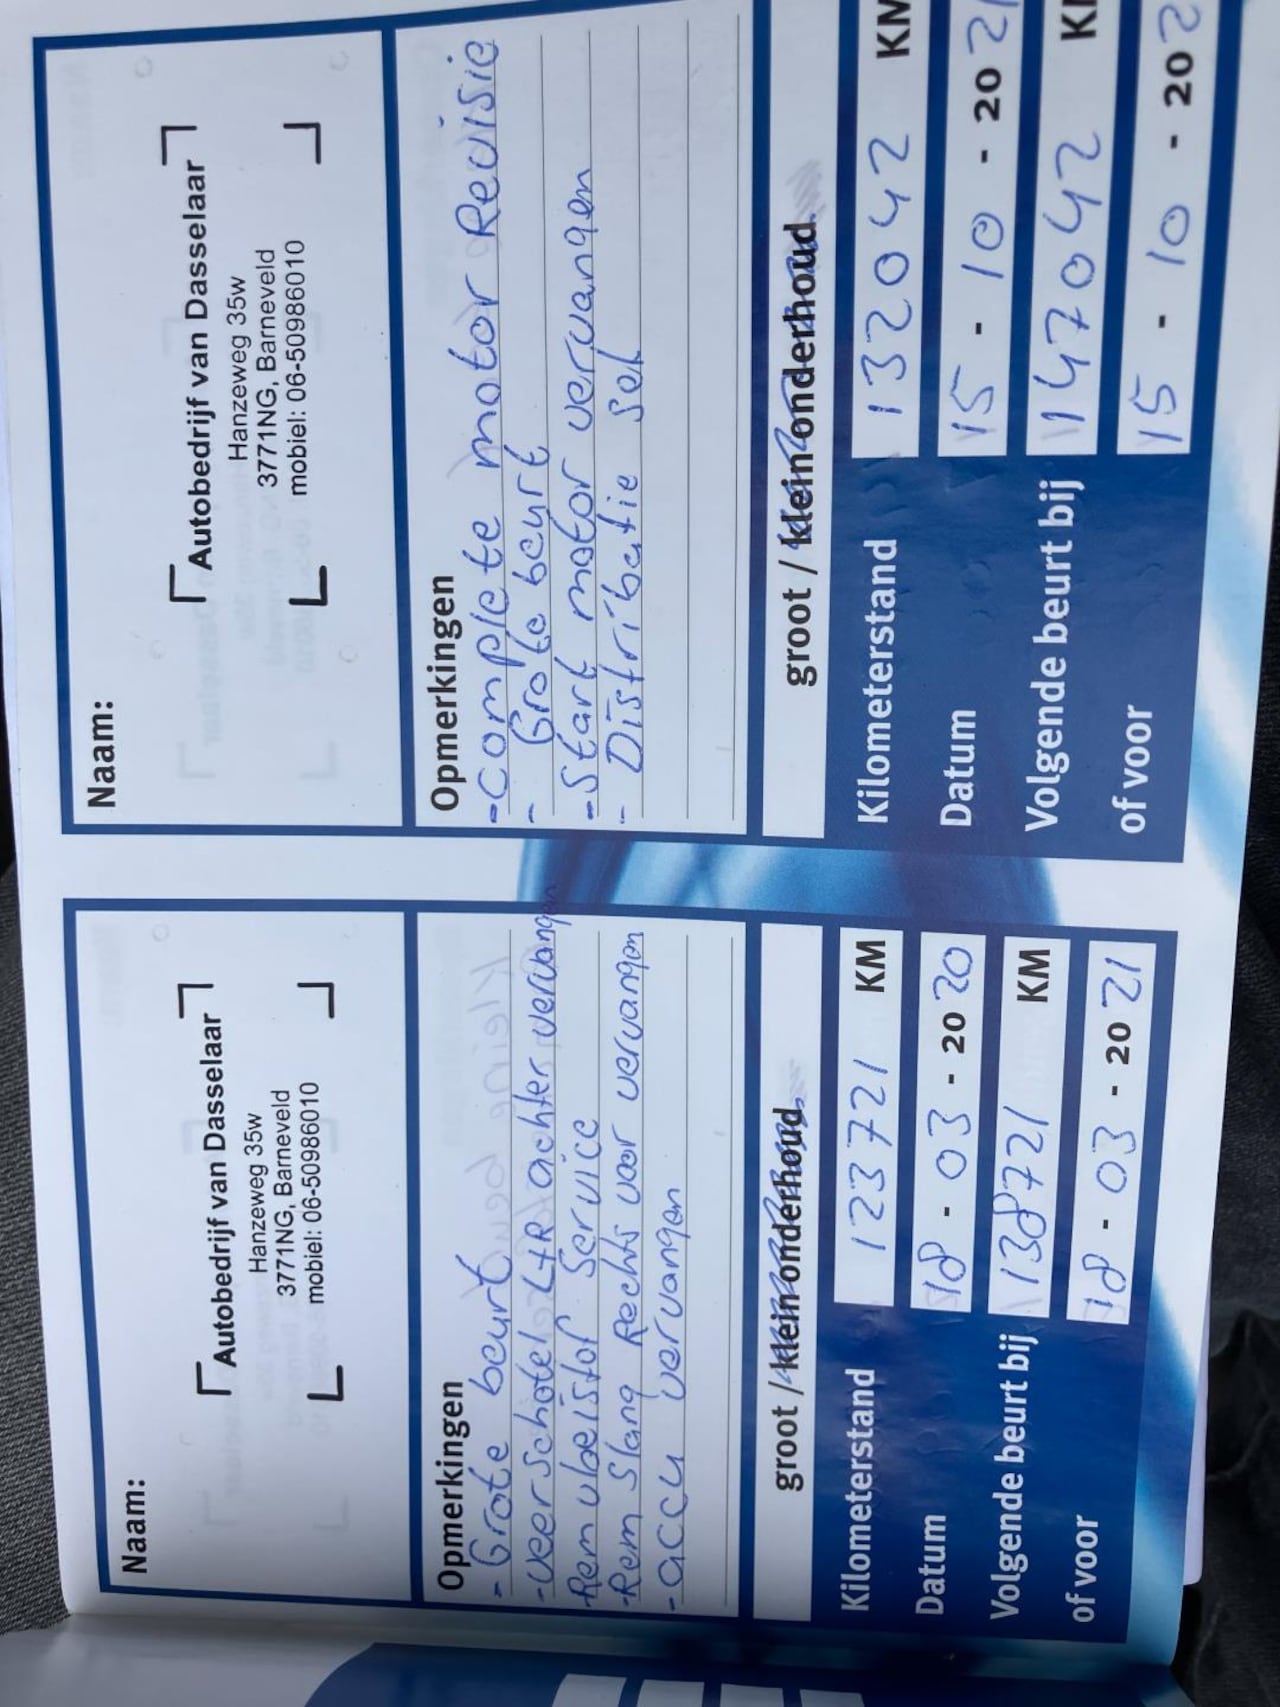 Naam:
Autobedrijf van Dasselaar
Hanzeweg 35w
3771NG, Barneveld
mobiel: 06-50986010
Opmerkingen
- Grote beurt
- veerschotel L+R achter vervangen
- Rem vloeistof Service
- Rem slang Rechts voor vervangen
- accu vervangen
groot / klein onderhoud
Kilometerstand 123721 KM
Datum 18 - 03 - 2020
Volgende beurt bij 138721 KM
of voor 18 - 03 - 2021
Naam:
Autobedrijf van Dasselaar
Hanzeweg 35w
3771NG, Barneveld
mobiel: 06-50986010
Opmerkingen
- complete motor Revisie
- Grote beurt
- Start motor vervangen
- Distributie set
groot / klein onderhoud
Kilometerstand 132042 KM
Datum 15 - 10 - 2021
Volgende beurt bij 147042 KM
of voor 15 - 10 - 202